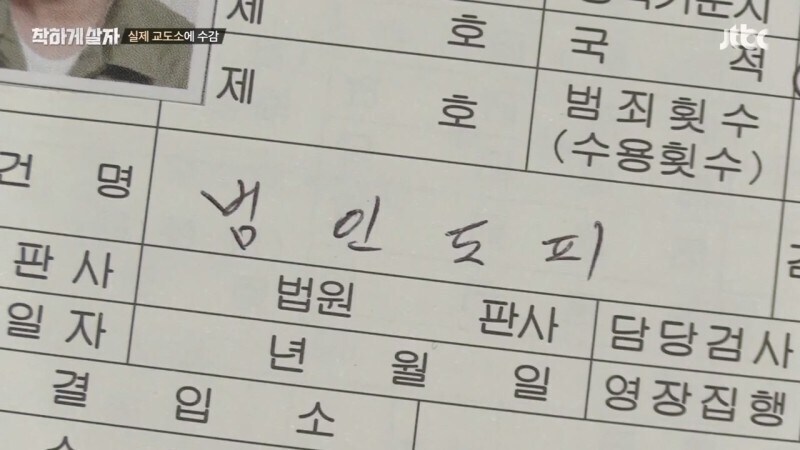 착하게 살자 실제 교도소에 수감
jtbc
제 호 국 적
제 호 범죄횟수
(수용횟수)
건 명 범 인 도 피
판 사 법원 판사 담당검사
일 자 년 월 일 영장집행
결 입 소